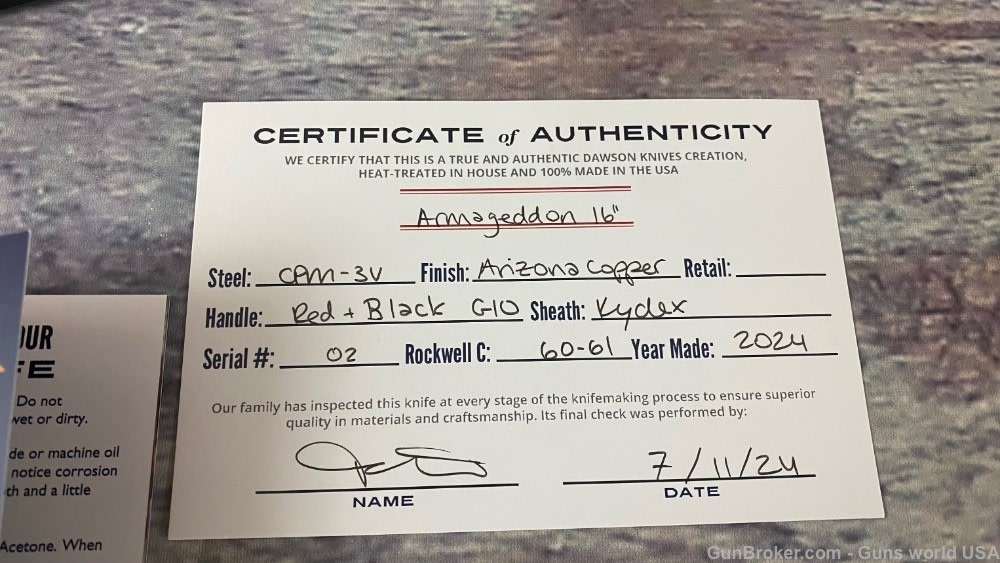 CERTIFICATE of AUTHENTICITY
WE CERTIFY THAT THIS IS A TRUE AND AUTHENTIC DAWSON KNIVES CREATION,
HEAT-TREATED IN HOUSE AND 100% MADE IN THE USA
Armageddon 16"
Steel: CPM-3V Finish: Arizona Copper Retail:
Handle: Red + Black G10 Sheath: Kydex
Serial #: 02 Rockwell C: 60-61 Year Made: 2024
Our family has inspected this knife at every stage of the knifemaking process to ensure superior
quality in materials and craftsmanship. Its final check was performed by:
7/11/24
NAME DATE
OUR
FE
Do not
wet or dirty.
de or machine oil
notice corrosion
th and a little
Acetone. When
GunBroker.com - Guns world USA